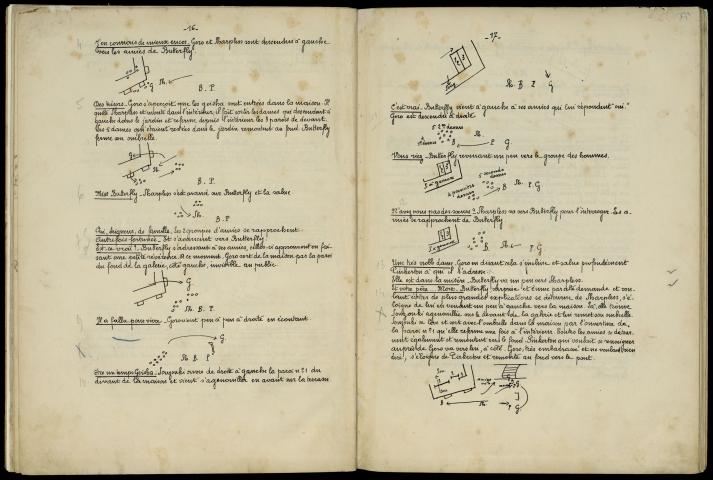 -16-
J'en connais de mieux encor. Goro et Sharpless sont descendus à gauche
vers les amies de Butterfly
G Sh.
B. P.
Goro s'aperçoit que les geisha sont entrées dans la maison. Il
quitte Sharpless et montant dans l'intérieur, il fait sortir les dames qui descendent à
gauche dans le jardin et referme depuis l'intérieur les 3 parois de devant.
Les 5 dames qui étaient restées dans le jardin remontent au fond. Butterfly
ferme son ombrelle.
Go
So
B. P.
Miss Butterfly. Sharpless s'est avancé sur Butterfly et la salue
Sh.
B. P
de famille. les 2 groupes d'amies se rapprochent
Autrefois fortunée. Et s'adressent vers Butterfly
Est-ce vrai? Butterfly s'adressant à ses amies, celles-ci approuvent en fai-
sant une petite révérence. À ce moment, Goro sort de la maison par la paroi
du fond de la galerie, côté gauche, invisible au public.
G
Sh. B. P.
Il a fallu pour vivre. Goro vient peu à peu à droite en écoutant.
G
Sh. B. P
un temps Geisha. Souzouki ouvre de droite à gauche la paroi n°1 du
devant de la maison et vient s'agenouiller en avant sur la terrasse
-17-
Sh. B P G
C'est vrai. Butterfly vient à gauche à ses amies qui lui répondent "oui"
Goro est descendu à droite.
5 dames
Sh.
B P G.
Vous riez. Butterfly revenant un peu vers le groupe des hommes.
5 secondes
dames
S à genoux
4 premières
dames
B Sh. P. G
N'avez vous pas des sœurs? Sharpless va vers Butterfly pour l'interroger. Les a-
mies se rapprochent de Butterfly
S à genoux
B Sh P G
Une très noble dame. Goro en disant cela s'incline et salue profondément
Pinkerton à qui il s'adresse.
Elle est dans la misère. Butterfly va un peu vers Sharpless.
Et votre père. Mort. Butterfly surprise et émue par cette demande et vou-
lant éviter de plus grandes explications se détourne de Sharpless, s'é-
loigne de lui en venant un peu à gauche vers la maison. Là, elle trouve
Souzouki agenouillée sur le devant de la galerie et lui remet son ombrelle.
Souzouki se lève et sort avec l'ombrelle dans la maison par l'ouverture de
la paroi n°1 qu'elle referme une fois à l'intérieur. Toutes les amies se détour-
nent également et remontent vers le fond. Pinkerton qui voulait se renseigner
auprès de Goro va vers lui, à côté. Goro, très embarrassé et ne voulant rien
dire, s'éloigne de Pinkerton et remonte au fond vers le pont.
B Sh. P G